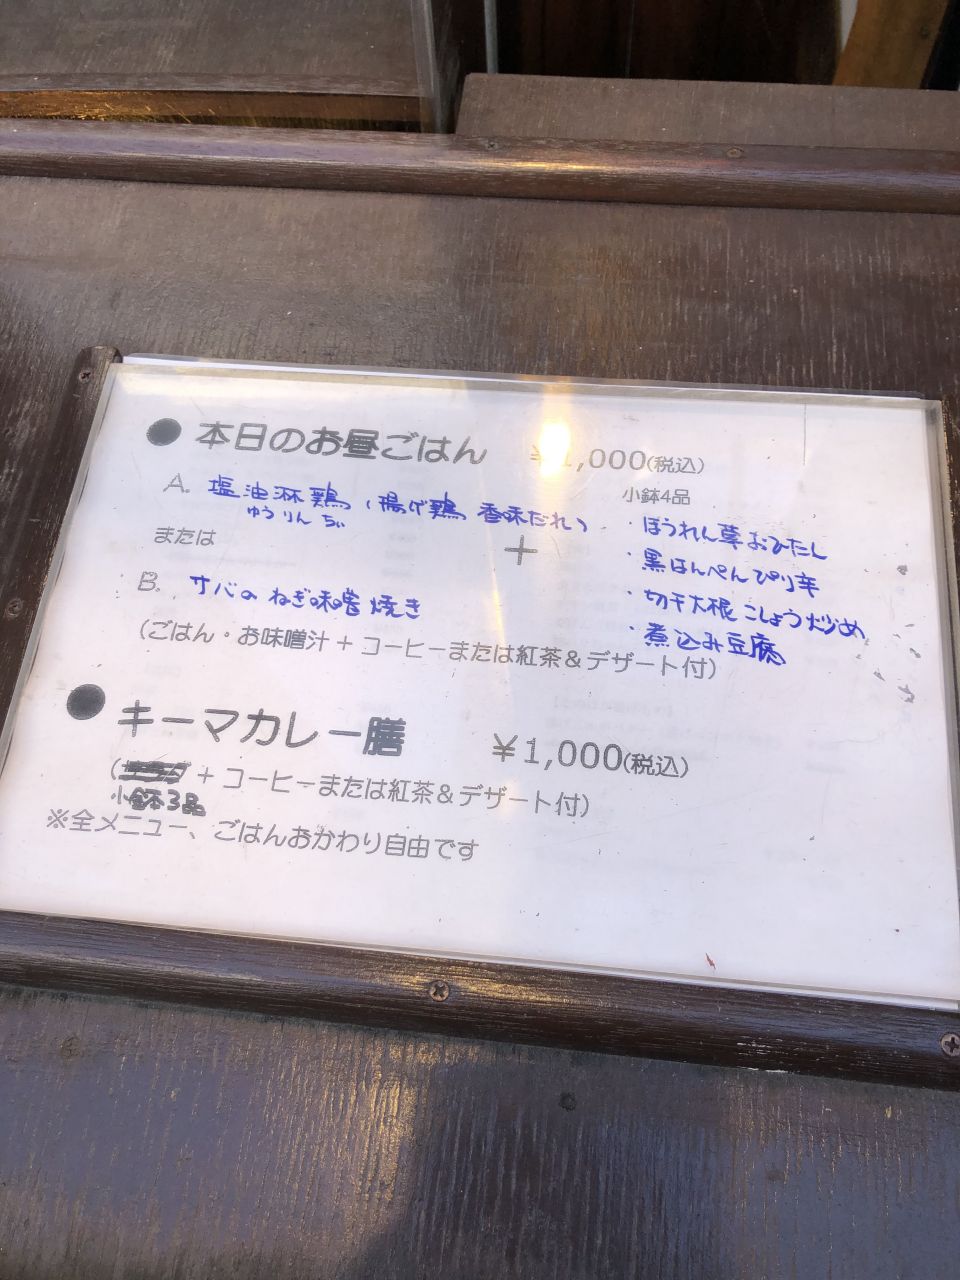 ●本日のお昼ごはん ¥1,000(税込)
A. 塩油淋鶏(揚げ鶏 香味だれ)
ゆうりんちぃ
または
B. サバのねぎ味噌焼き
+
小鉢4品
・ほうれん草おひたし
・黒はんぺんぴり辛
・切干大根こしょう炒め
・煮込み豆腐
(ごはん・お味噌汁+コーヒーまたは紅茶&デザート付)
●キーマカレー膳 ¥1,000(税込)
(サラダ+コーヒーまたは紅茶&デザート付)
小鉢3品
※全メニュー、ごはんおかわり自由です